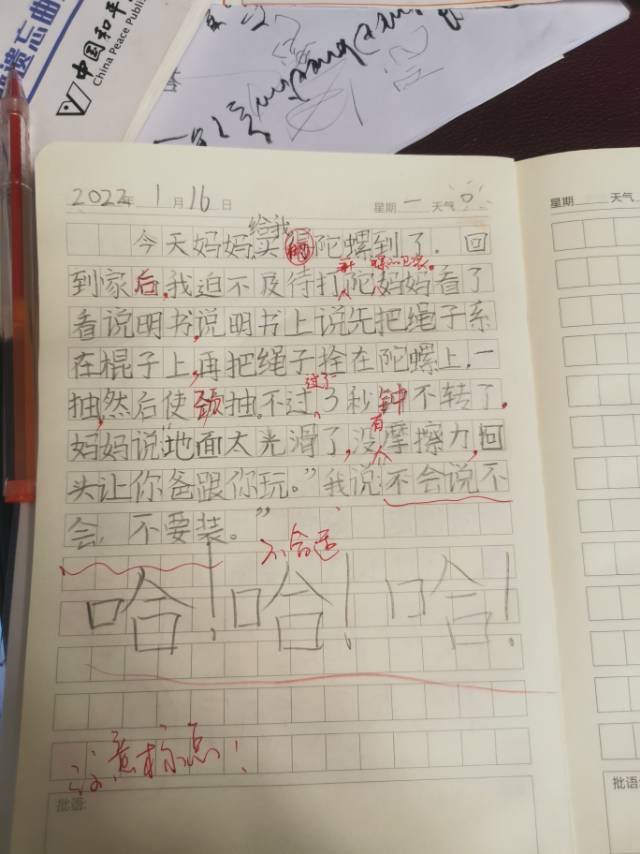 遗忘曲
中国和平
China Peace Publi
2022年 1月16日 星期一 天气
星期 天气
给我
今天妈妈买的陀螺到了.回
到家后,我迫不及待打陀妈妈看了
看说明书,说明书上说先把绳子系
在棍子上,再把绳子拴在陀螺上,一
过了
抽,然后使劲抽,不过,3秒钟不转了.
有
妈妈说"地面太光滑了,没摩擦力,回
头让你爸跟你玩。"我说:不会说不
会,不要装。"
不合适
哈!哈!哈!
注意标点!
批语:
批语: